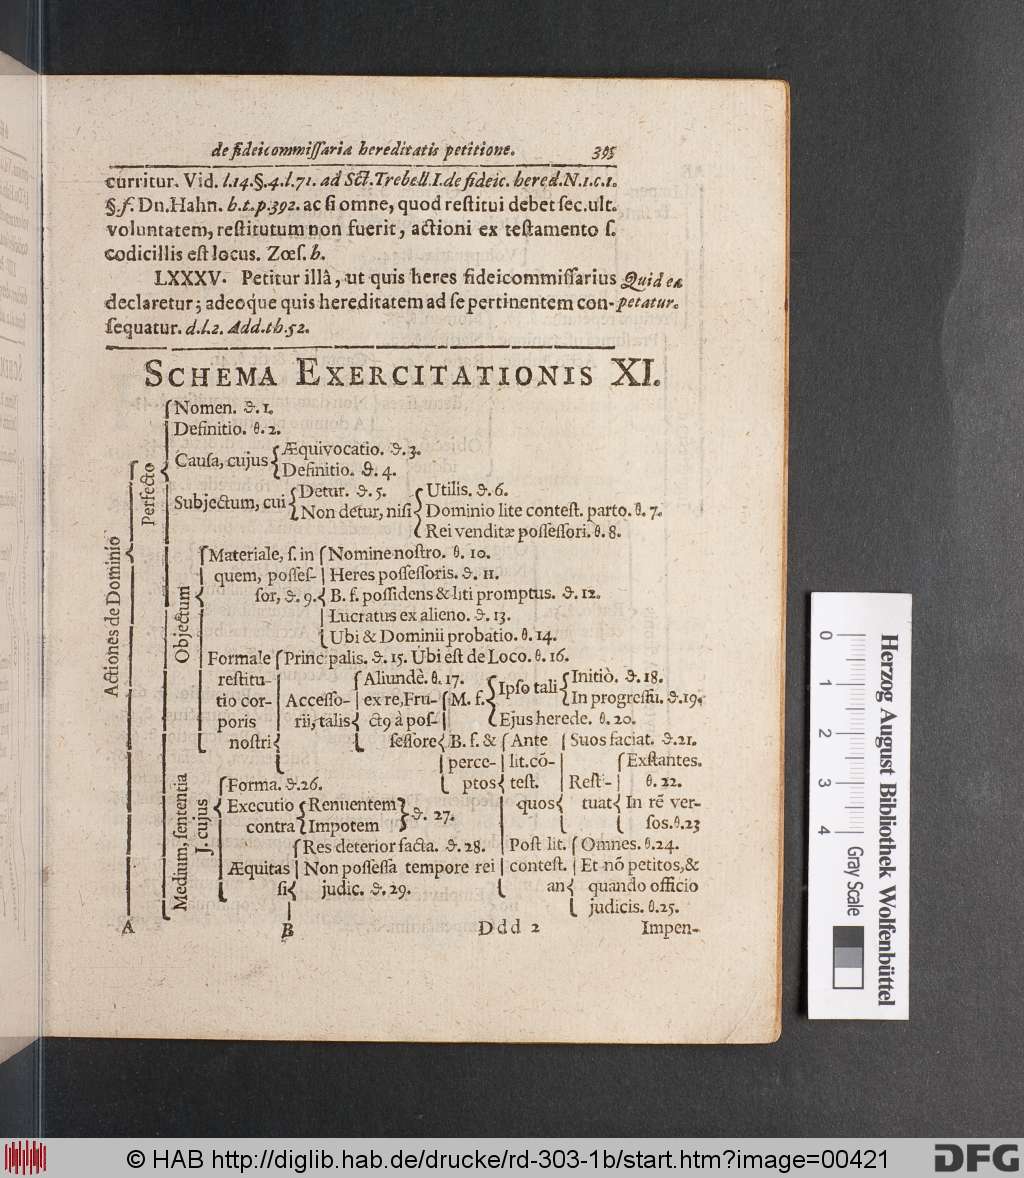 de fideicommissaria hereditatis petitione. 395
curritur. Vid. l.14.§.4.l.71. ad Sct.Trebell.I.de fideic. hered.N.1.c.1.
§.f. Dn.Hahn. h.t.p.392. ac si omne, quod restitui debet sec.ult.
voluntatem, restitutum non fuerit, actioni ex testamento s.
codicillis est locus. Zœs. h.
LXXXV. Petitur illâ, ut quis heres fideicommissarius Quid eâ
declaretur; adeoque quis hereditatem ad se pertinentem con- petatur.
sequatur. d.l.2. Add.th.52.
SCHEMA EXERCITATIONIS XI.
Actiones de Dominio
Perfecto
Nomen. ϑ.1.
Definitio. θ.2.
Causa, cujus
Æquivocatio. ϑ.3.
Definitio. ϑ.4.
Subjectum, cui
Detur. ϑ.5.
Non detur, nisi
Utilis. ϑ.6.
Dominio lite contest. parto. θ.7.
Rei venditæ possessori. θ.8.
Objectum
Materiale, s. in
quem, posses-
sor, ϑ.9.
Nomine nostro. θ.10.
Heres possessoris. ϑ.11.
B. f. possidens & liti promptus. ϑ.12.
Lucratus ex alieno. ϑ.13.
Ubi & Dominii probatio. θ.14.
Formale
restitu-
tio cor-
poris
nostri
Principalis. ϑ.15. Ubi est de Loco. θ.16.
Accesso-
rii, talis
Aliundè. θ.17.
ex re, Fru-
ct9 à pos-
sessore
M. f.
Ipso tali
Initiò. ϑ.18.
In progressu. ϑ.19.
Ejus herede. θ.20.
B. f. &
perce-
ptos
Ante
lit.cō-
test.
quos
Suos faciat. ϑ.21.
Rest-
tuat
Exstantes.
θ.22.
In rē ver-
sos.θ.23
Post lit.
contest.
an
Omnes. θ.24.
Et nō petitos, &
quando officio
judicis. θ.25.
Medium, sententia
J. cujus
Forma. ϑ.26.
Executio
contra
Renuentem
Impotem
ϑ. 27.
Æquitas
si
Res deterior facta. ϑ.28.
Non possessa tempore rei
judic. ϑ.29.
A B Ddd 2 Impen-
0 1 2 3 4
Gray Scale
Herzog August Bibliothek Wolfenbüttel
© HAB http://diglib.hab.de/drucke/rd-303-1b/start.htm?image=00421
DFG